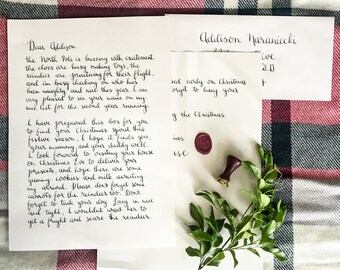 Dear Addison
the North Pole is buzzing with excitement
the elves are busy making toys, the
reindeer are practicing for their flight,
and I'm busy checking on who has
been naughty and nice this year. I am
very pleased to see your name on my
nice list for the second year running.
I have prepared this box for you
to find your Christmas spirit this
festive season. I hope it finds you,
your mummy, and your daddy well.
I look forward to visiting your house
on Christmas Eve to deliver your
presents, and hope there are some
yummy cookies and milk awaiting
my arrival. Please don't forget some
carrots for the reindeer too. Don't
forget to tuck your dog in nice
and tight, I wouldn't want her to
get a fright and scare the reindeer
Addison Naraniecki
early on Christmas
forget to hang your
the Christmas